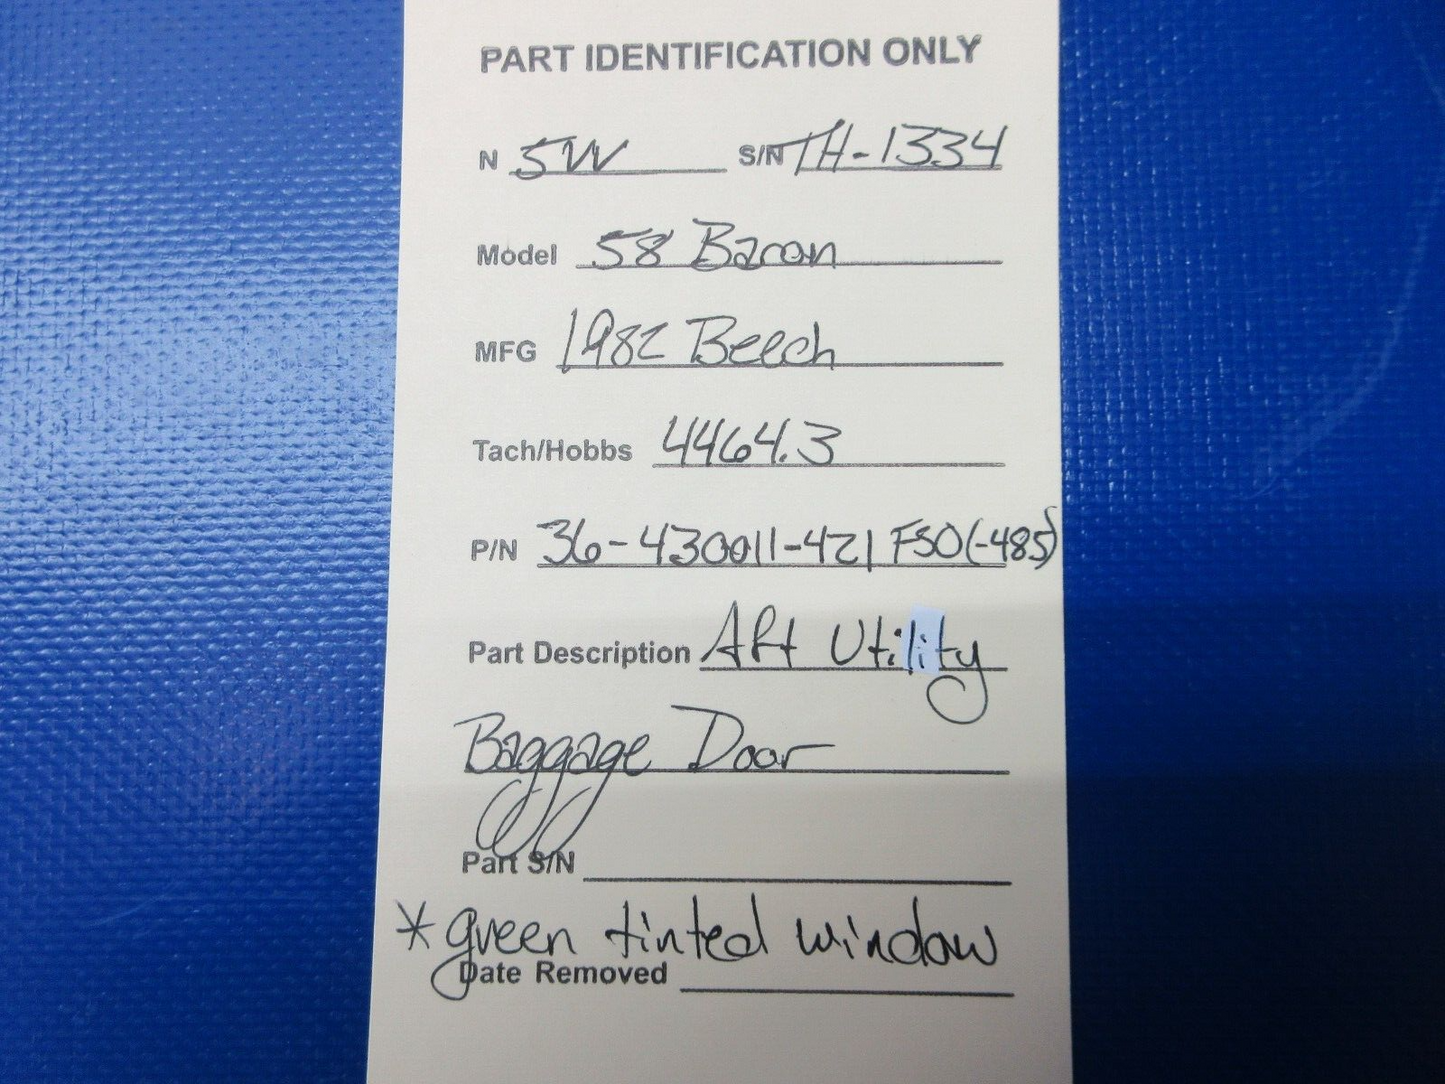 PART IDENTIFICATION ONLY
N 5W S/N TH-1334
Model 58 Baron
MFG 1982 Beech
Tach/Hobbs 4464.3
P/N 36-430011-421 FSO(-485)
Part Description Aft Utility
Baggage Door
Part S/N
*green tinted window
Date Removed